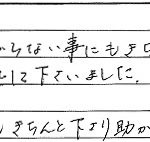 らない事にもき
して下さいました。
きちんと下さり助か